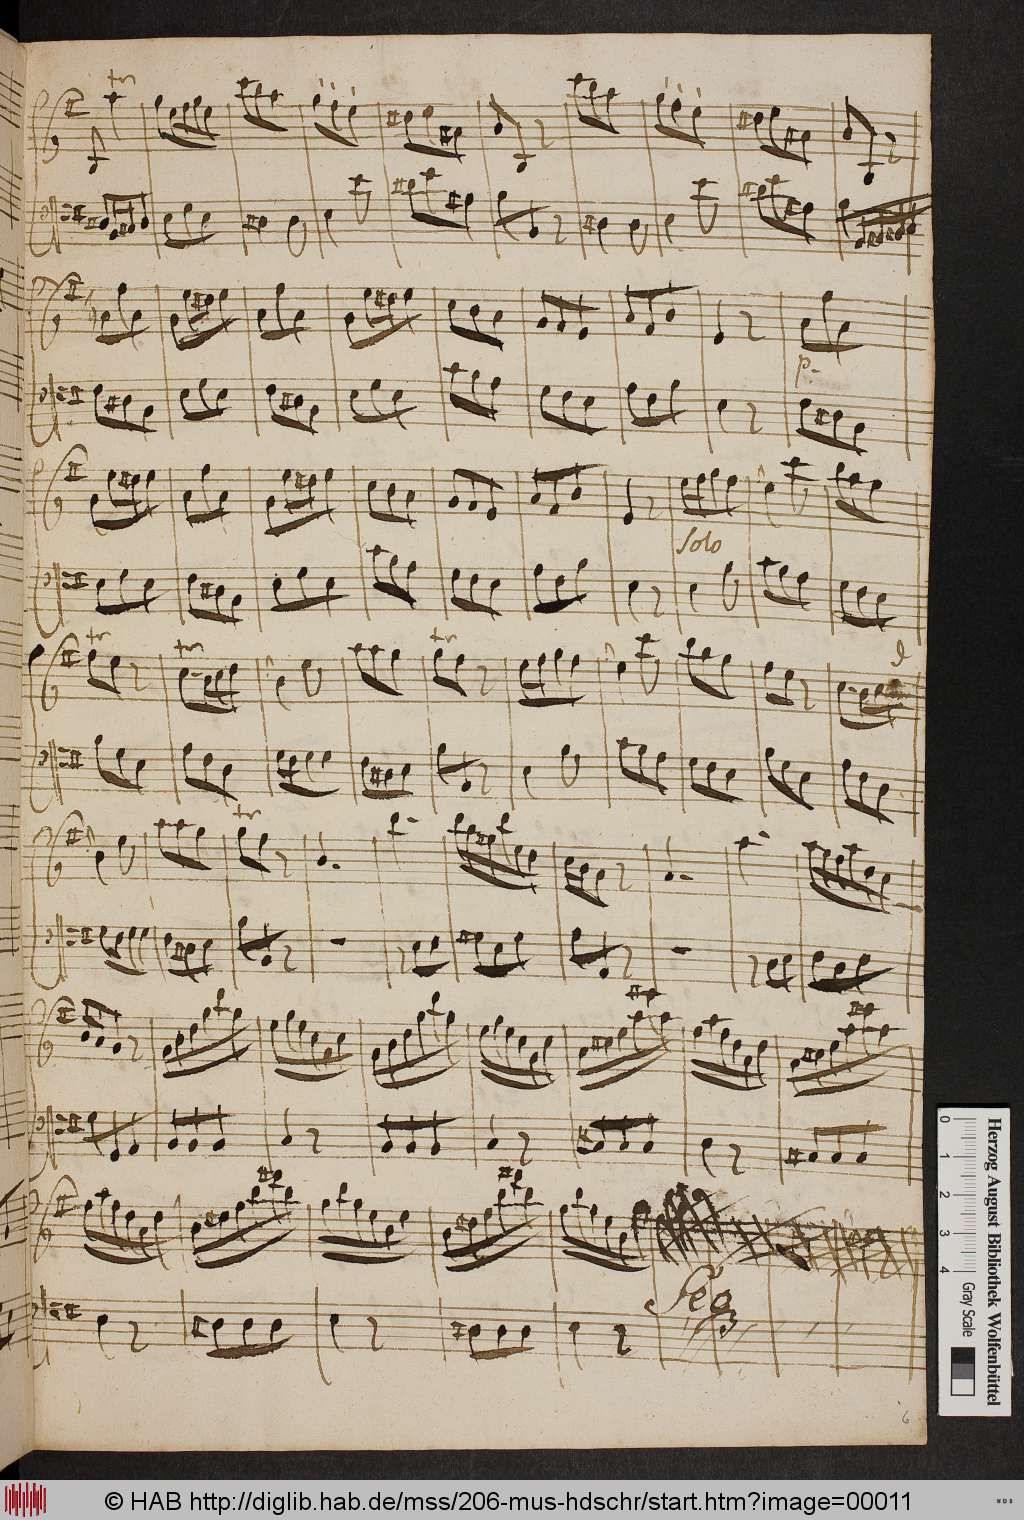 tr
p.
Solo
tr
tr
tr
tr
Seg
6
0 1 2 3 4
Herzog August Bibliothek Wolfenbüttel
Gray Scale
© HAB http://diglib.hab.de/mss/206-mus-hdschr/start.htm?image=00011